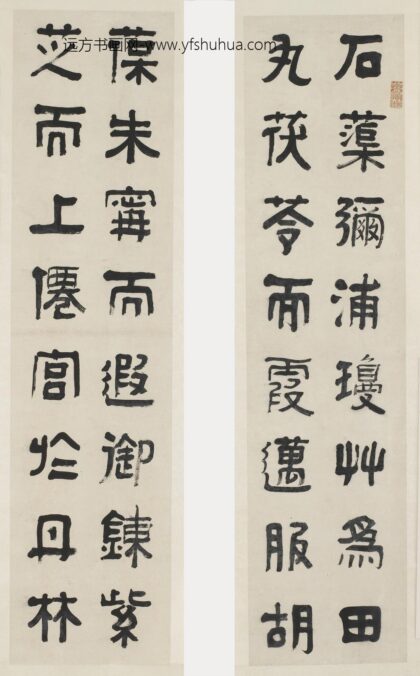 远方书画网-www.yfshuhua.com
石蕖彌浦瓊艸爲田
丸茯苓而霞邁服胡
葆朱寗而遐御鍊紫
芝而上僊宮於丹林